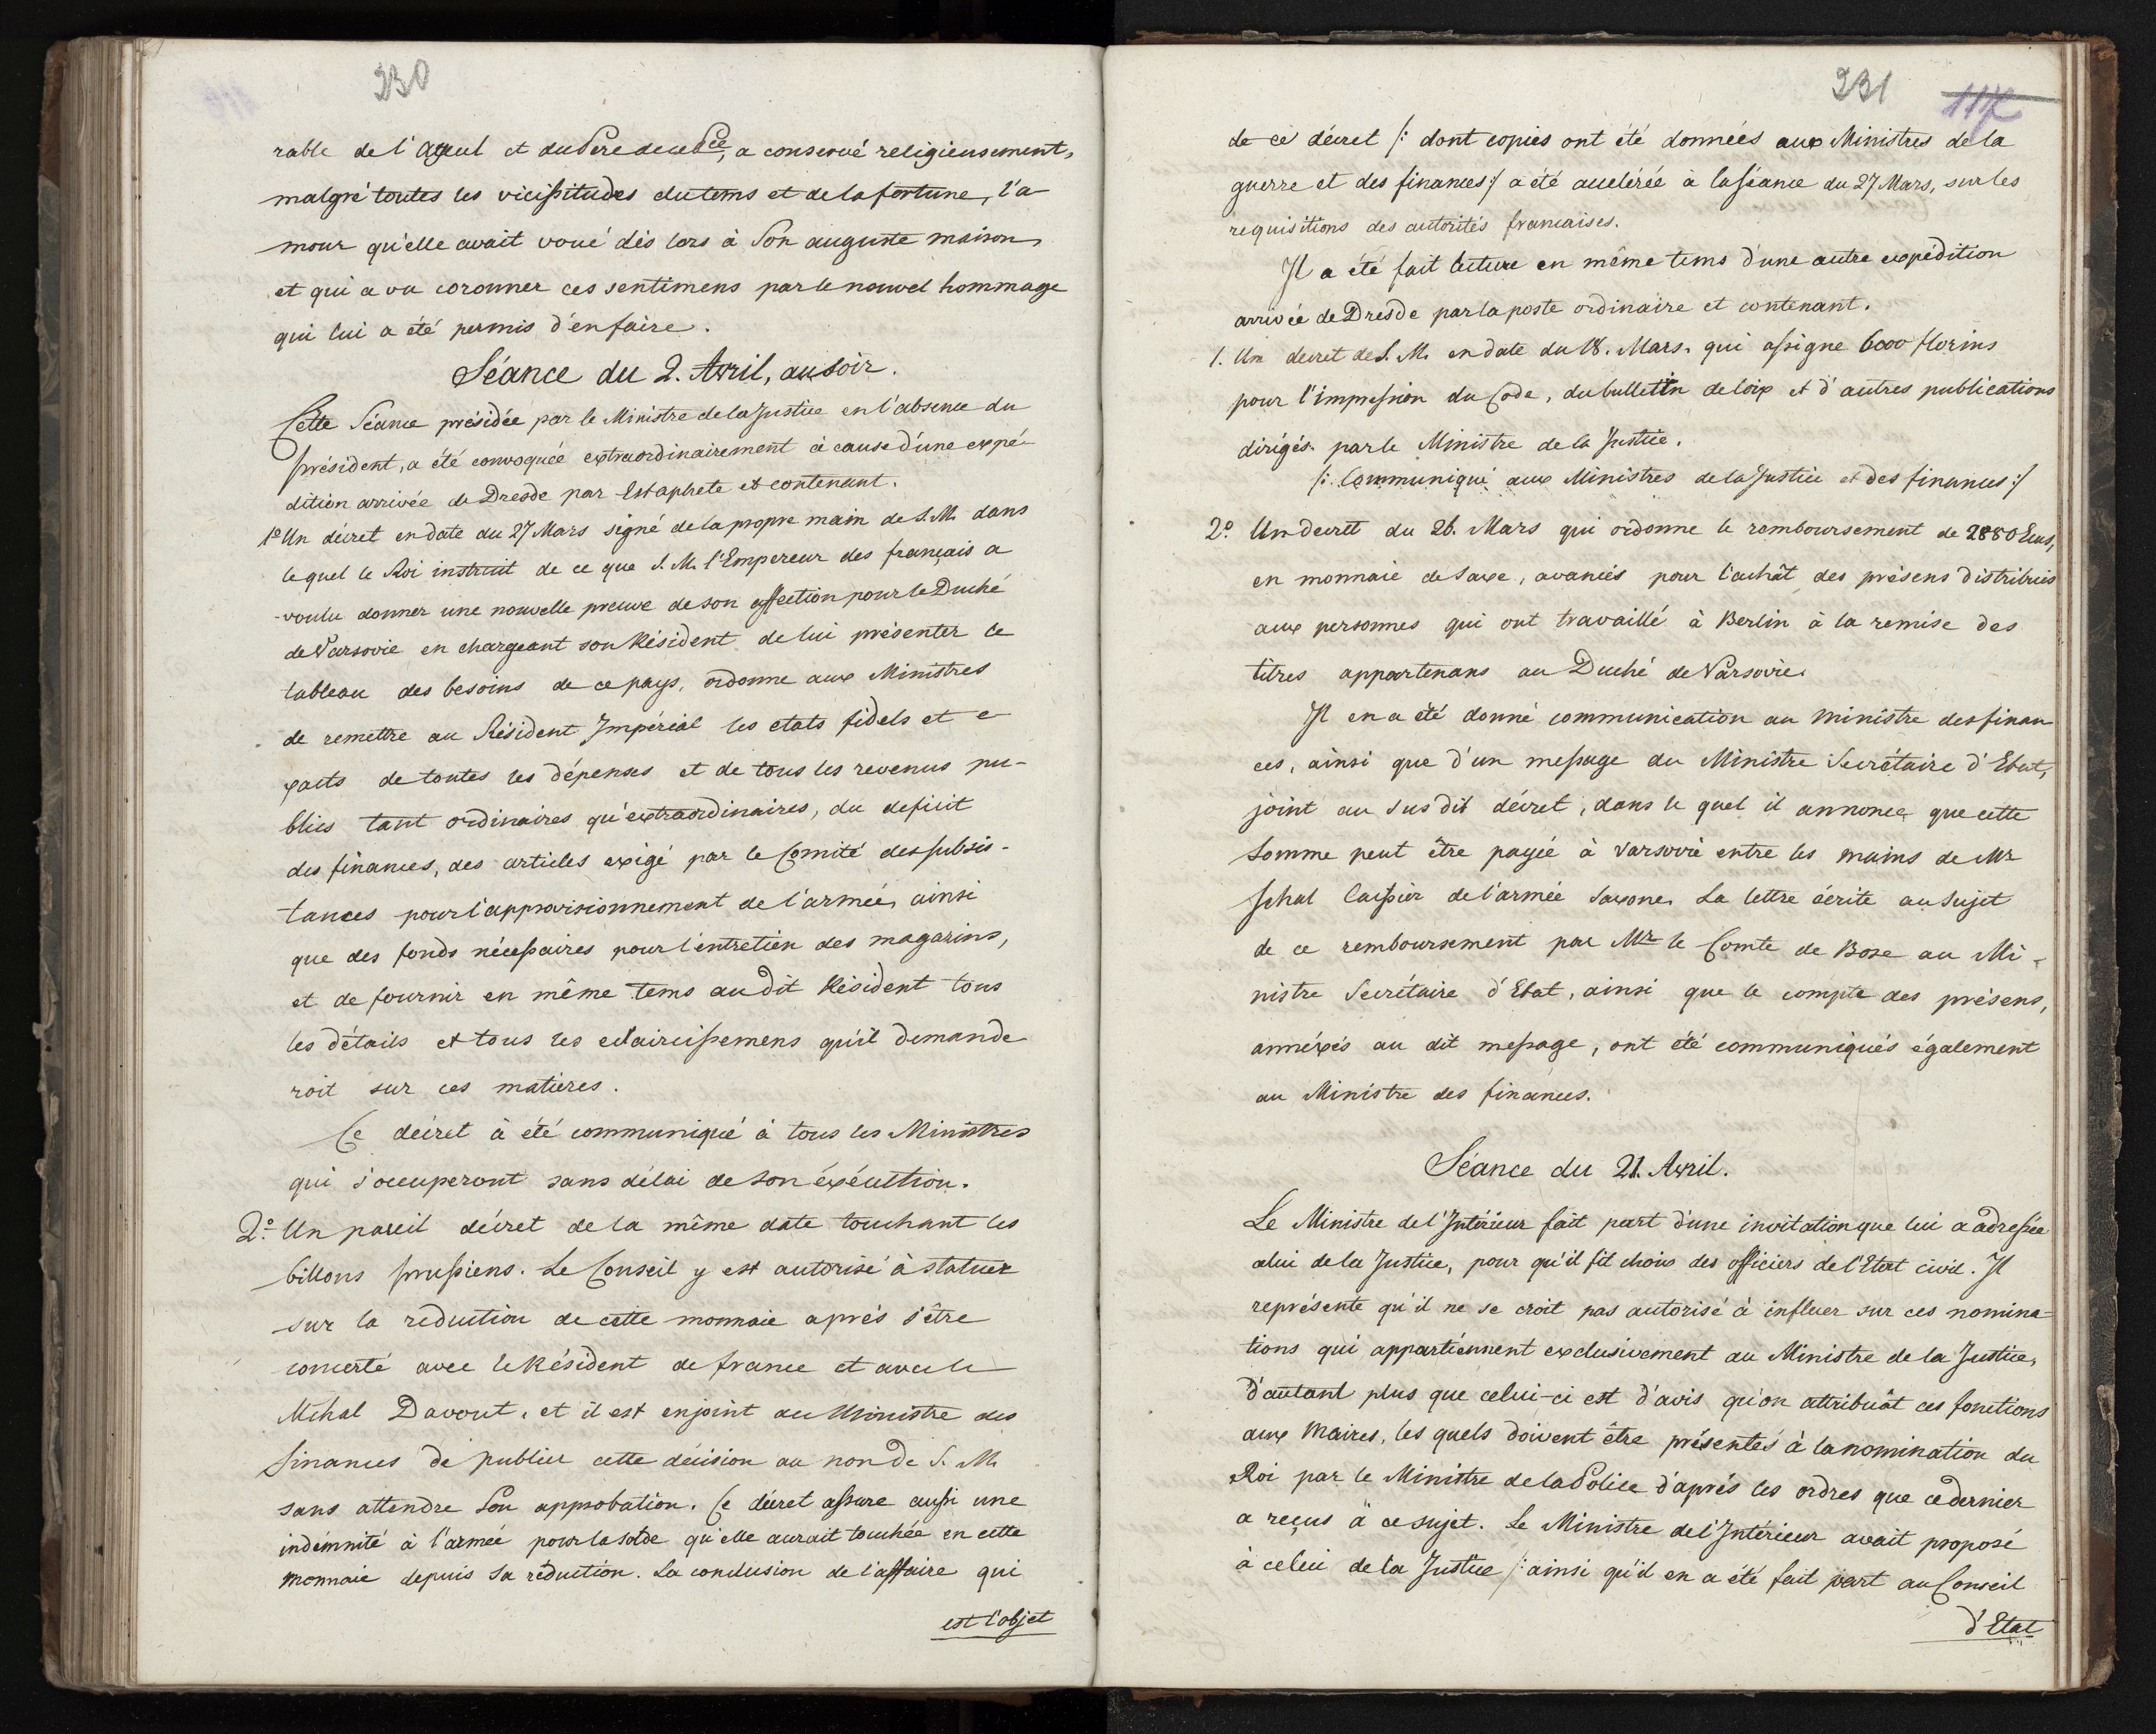 230
rable de l'ayeul et du Pere de ce Pce, a conservé religieusement,
malgré toutes les vicissitudes du tems et de la fortune, l'a
mour qu'elle avait voué dès lors à Son auguste maison
et qui a vu coronner ces sentimens par le nouvel hommage
qui lui a été permis d'en faire.
Séance du 2. Avril, au soir.
Cette Séance présidée par le Ministre de la Justice en l'absence du
président, a été convoquée extraordinairement à cause d'une expé-
dition arrivée de Dresde par Estaphete et contenant.
1º Un décret en date du 27 Mars signé de la propre main de S. M. dans
le quel le Roi instruit de ce que S. M. l'Empereur des français a
voulu donner une nouvelle preuve de son affection pour le Duché
de Varsovie en chargeant son Résident de lui présenter le
tableau des besoins de ce pays, ordonne aux Ministres
de remettre au Résident Impérial les etats fidels et e
xacts de toutes les dépenses et de tous les revenus pu-
blics tant ordinaires qu'extraordinaires, du deficit
des finances, des articles exigé par le Comité des subsis-
tances pour l'approvisionnement de l'armée, ainsi
que des fonds nécessaires pour l'entretien des magazins,
et de fournir en même tems au dit Résident tous
les détails et tous les eclaircissemens qu'il demande
roit sur ces matières.
Ce décret à été communiqué à tous les Ministres
qui s'occuperont sans délai de son éxécuttion.
2º Un pareil décret de la même date touchant les
billons prussiens. Le Conseil y est autorisé à statuer
sur la reduction de cette monnaie aprés s'être
concerté avec le Résident de france et avec le
Mchal Davout, et il est enjoint au Ministre des
finances de publier cette décision au nom de S. M.
sans attendre Son approbation. Ce décret assure aussi une
indémnité à l'armée pour la solde qu'elle aurait touchée en cette
monnaie depuis sa réduction. La conclusion de l'affaire qui
est l'objet
231
117
de ce décret /: dont copies ont été données aux Ministres de la
guerre et des finances :/ a été accélérée à la séance du 27 Mars, sur les
requisitions des autorités francaises.
Il a été fait lecture en même tems d'une autre expédition
arrivée de Dresde par la poste ordinaire et contenant.
1. Un decret de S. M. en date du 18. Mars. qui assigne 6000 florins
pour l'impression du Code, du bulletin de loix et d'autres publications
dirigés par le Ministre de la Justice.
/: Communiqué aux Ministres de la Justice et des finances :/
2º Un decrett du 26. Mars qui ordonne le remboursement de 2880 Ecus,
en monnaie de Saxe, avancés pour l'achât des présens distribués
aux personnes qui ont travaillé à Berlin à la remise des
titres appartenans au Duché de Varsovie.
Il en a été donné communication au ministre des finan
ces, ainsi que d'un message du Ministre Secrétaire d'Etat,
joint au susdit décret, dans le quel il annonce que cette
somme peut être payée à Varsovie entre les mains de Mr
Schal Caissier de l'armée Saxone. La lettre écrite au Sujet
de ce remboursement par Mr le Comte de Bose au Mi-
nistre Secrétaire d'Etat, ainsi que le compte des présens,
annéxés au dit message, ont été communiqués également
au Ministre des finances.
Séance du 21. Avril.
Le Ministre de l'Intérieur fait part d'une invitation que lui a adressée
celui de la Justice, pour qu'il fit choix des officiers de l'Etat civil. Il
représente qu'il ne se croit pas autorisé à influer sur ces nomina-
tions qui appartiénnent exclusivement au Ministre de la Justice,
d'autant plus que celui-ci est d'avis qu'on attribuât ces fonctions
aux Maires, les quels doivent être présentés à la nomination du
Roi par le Ministre de la Police d'aprés les ordres que ce dernier
a reçus à ce sujet. Le Ministre de l'Intérieur avait proposé
à celui de la Justice /: ainsi qu'il en a été fait part au Conseil
d'Etat